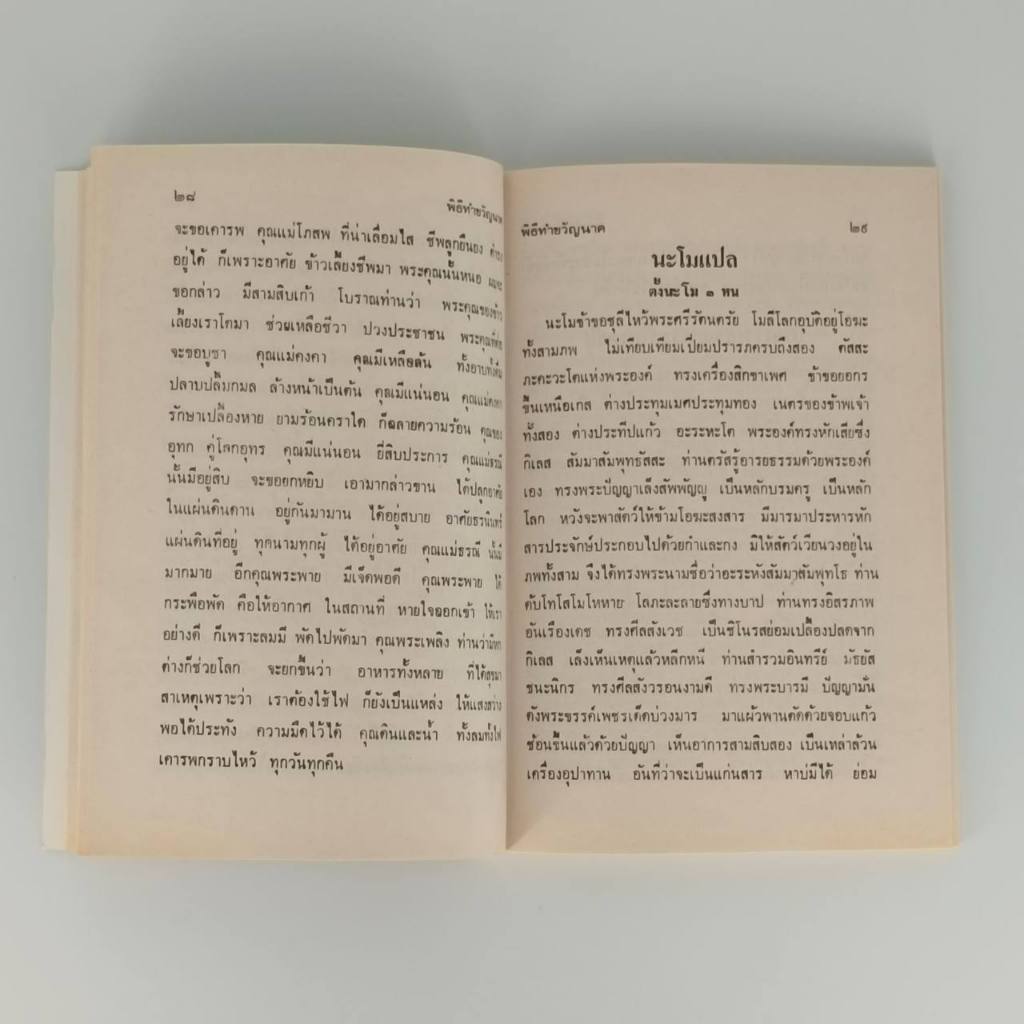 ๒๘
พิธีทำขวัญนาค
จะขอเคารพ คุณแม่โภสพ ที่น่าเลื่อมใส ชีพลูกยืนยง
อยู่ได้ ก็เพราะอาศัย ข้าวเลี้ยงชีพมา พระคุณนั้นหนอ
ขอกล่าว มีสามสิบเก้า โบราณท่านว่า พระคุณของข้าว
เลี้ยงเราโตมา ช่วยเหลือชีวา ปวงประชาชน พระคุณที่ต่อ
จะขอบูชา คุณแม่คงคา คุณมีเหลือล้น ทั้งอาบทั้งดื่ม
ปลาบปลื้มกมล ล้างหน้าเป็นต้น คุณมีแน่นอน คุณแม่คงคา
รักษาเปลื้องหาย ยามร้อนคราใด ก็ฉลายความร้อน คุณของ
อุทก คู่โลกอุทร คุณมีแน่นอน ยี่สิบประการ คุณแม่ธรณี
นั้นมีอยู่สิบ จะขอยกหยิบ เอามากล่าวขาน ได้ปลูกอาศัย
ในแผ่นดินดาน อยู่กันมานาน ได้อยู่สบาย อาศัยธรนินทร์
แผ่นดินที่อยู่ ทุกนามทุกผู้ ได้อยู่อาศัย คุณแม่ธรณี นั้นมี
มากมาย อีกคุณพระพาย มีเจ็ดพอดี คุณพระพาย ได้
กระพือพัด คือให้อากาศ ในสถานที่ หายใจออกเข้า ให้เรา
อย่างดี ก็เพราะลมมี พัดไปพัดมา คุณพระเพลิง ท่านว่ามี
ต่างก็ช่วยโลก จะยกขึ้นว่า อาหารทั้งหลาย ที่ได้สุขมา
สาเหตุเพราะว่า เราต้องใช้ไฟ ก็ยังเป็นแหล่ง ให้แสงสว่าง
พอได้ประทัง ความมืดไว้ได้ คุณดินและน้ำ ทั้งลมทั้งไฟ
เคารพกราบไหว้ ทุกวันทุกคืน
พิธีทำขวัญนาค
๒๙
นะโมแปล
ตั้งนะโม ๓ หน
นะโมข้าขอชุลีไหว้พระศรีรัตนตรัย โมลีโลกอุบัติอยู่โอฆะ
ทั้งสามภพ ไม่เทียบเทียมเปี่ยมปรารภครบถึงสอง ตัสสะ
ภะคะวะโตแห่งพระองค์ ทรงเครื่องสิกขาเพศ ข้าขอยอกร
ขึ้นเหนือเกส ต่างประทุมเมศประทุมทอง เนตรของข้าพเจ้า
ทั้งสอง ต่างประทีปแก้ว อะระหะโต พระองค์ทรงหักเสียซึ่ง
กิเลส สัมมาสัมพุทธัสสะ ท่านตรัสรู้อารยธรรมด้วยพระองค์
เอง ทรงพระปัญญาเล็งสัพพัญญู เป็นหลักบรมครู เป็นหลัก
โลก หวังจะพาสัตว์ให้ข้ามโอฆะสงสาร มีมารมาประหารหัก
สารประจักษ์ประกอบไปด้วยกำและกง มิให้สัตว์เวียนวงอยู่ใน
ภพทั้งสาม จึงได้ทรงพระนามชื่อว่าอะระหังสัมมาสัมพุทโธ ท่าน
ดับโทโสโมโหหาย โลภะละลายซึ่งทางบาป ท่านทรงอิสรภาพ
อันเรืองเดช ทรงศีลสังเวช เป็นชิโนรสย่อมเปลื้องปลดจาก
กิเลส เล็งเห็นเหตุแล้วหลีกหนี ท่านสำรวมอินทรีย์ มัธยัส
ชนะนิกร ทรงศีลสังวรอนงามดี ทรงพระบารมี ปัญญามั่น
ดังพระขรรค์เพชรเด็ดบ่วงมาร มาแผ้วพานตัดด้วยจอบแก้ว
ช้อนขึ้นแล้วด้วยปัญญา เห็นอาการสามสิบสอง เป็นเหล่าล้วน
เครื่องอุปาทาน อันที่ว่าจะเป็นแก่นสาร หาบ่มีได้ ย่อม